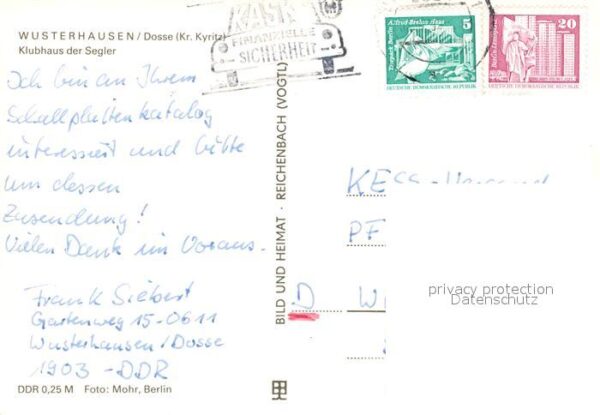 WUSTERHAUSEN / Dosse (Kr. Kyritz)
Klubhaus der Segler
KASKO
FINANZIELLE
SICHERHEIT
Alfred-Brehm-Haus
Tierpark Berlin
5
DEUTSCHE DEMOKRATISCHE REPUBLIK
20
DEUTSCHE DEMOKRATISCHE REPUBLIK
Ich bin an Ihrem
Schallplattenkatalog
interessiert und bitte
um dessen
Zusendung!
Vielen Dank im Voraus.
Frank Siebert
Gartenweg 15-0611
Wusterhausen/Dosse
1903 - DDR
DDR 0,25 M Foto: Mohr, Berlin
BILD UND HEIMAT · REICHENBACH (VOGTL)
PF
D W
privacy protection
Datenschutz